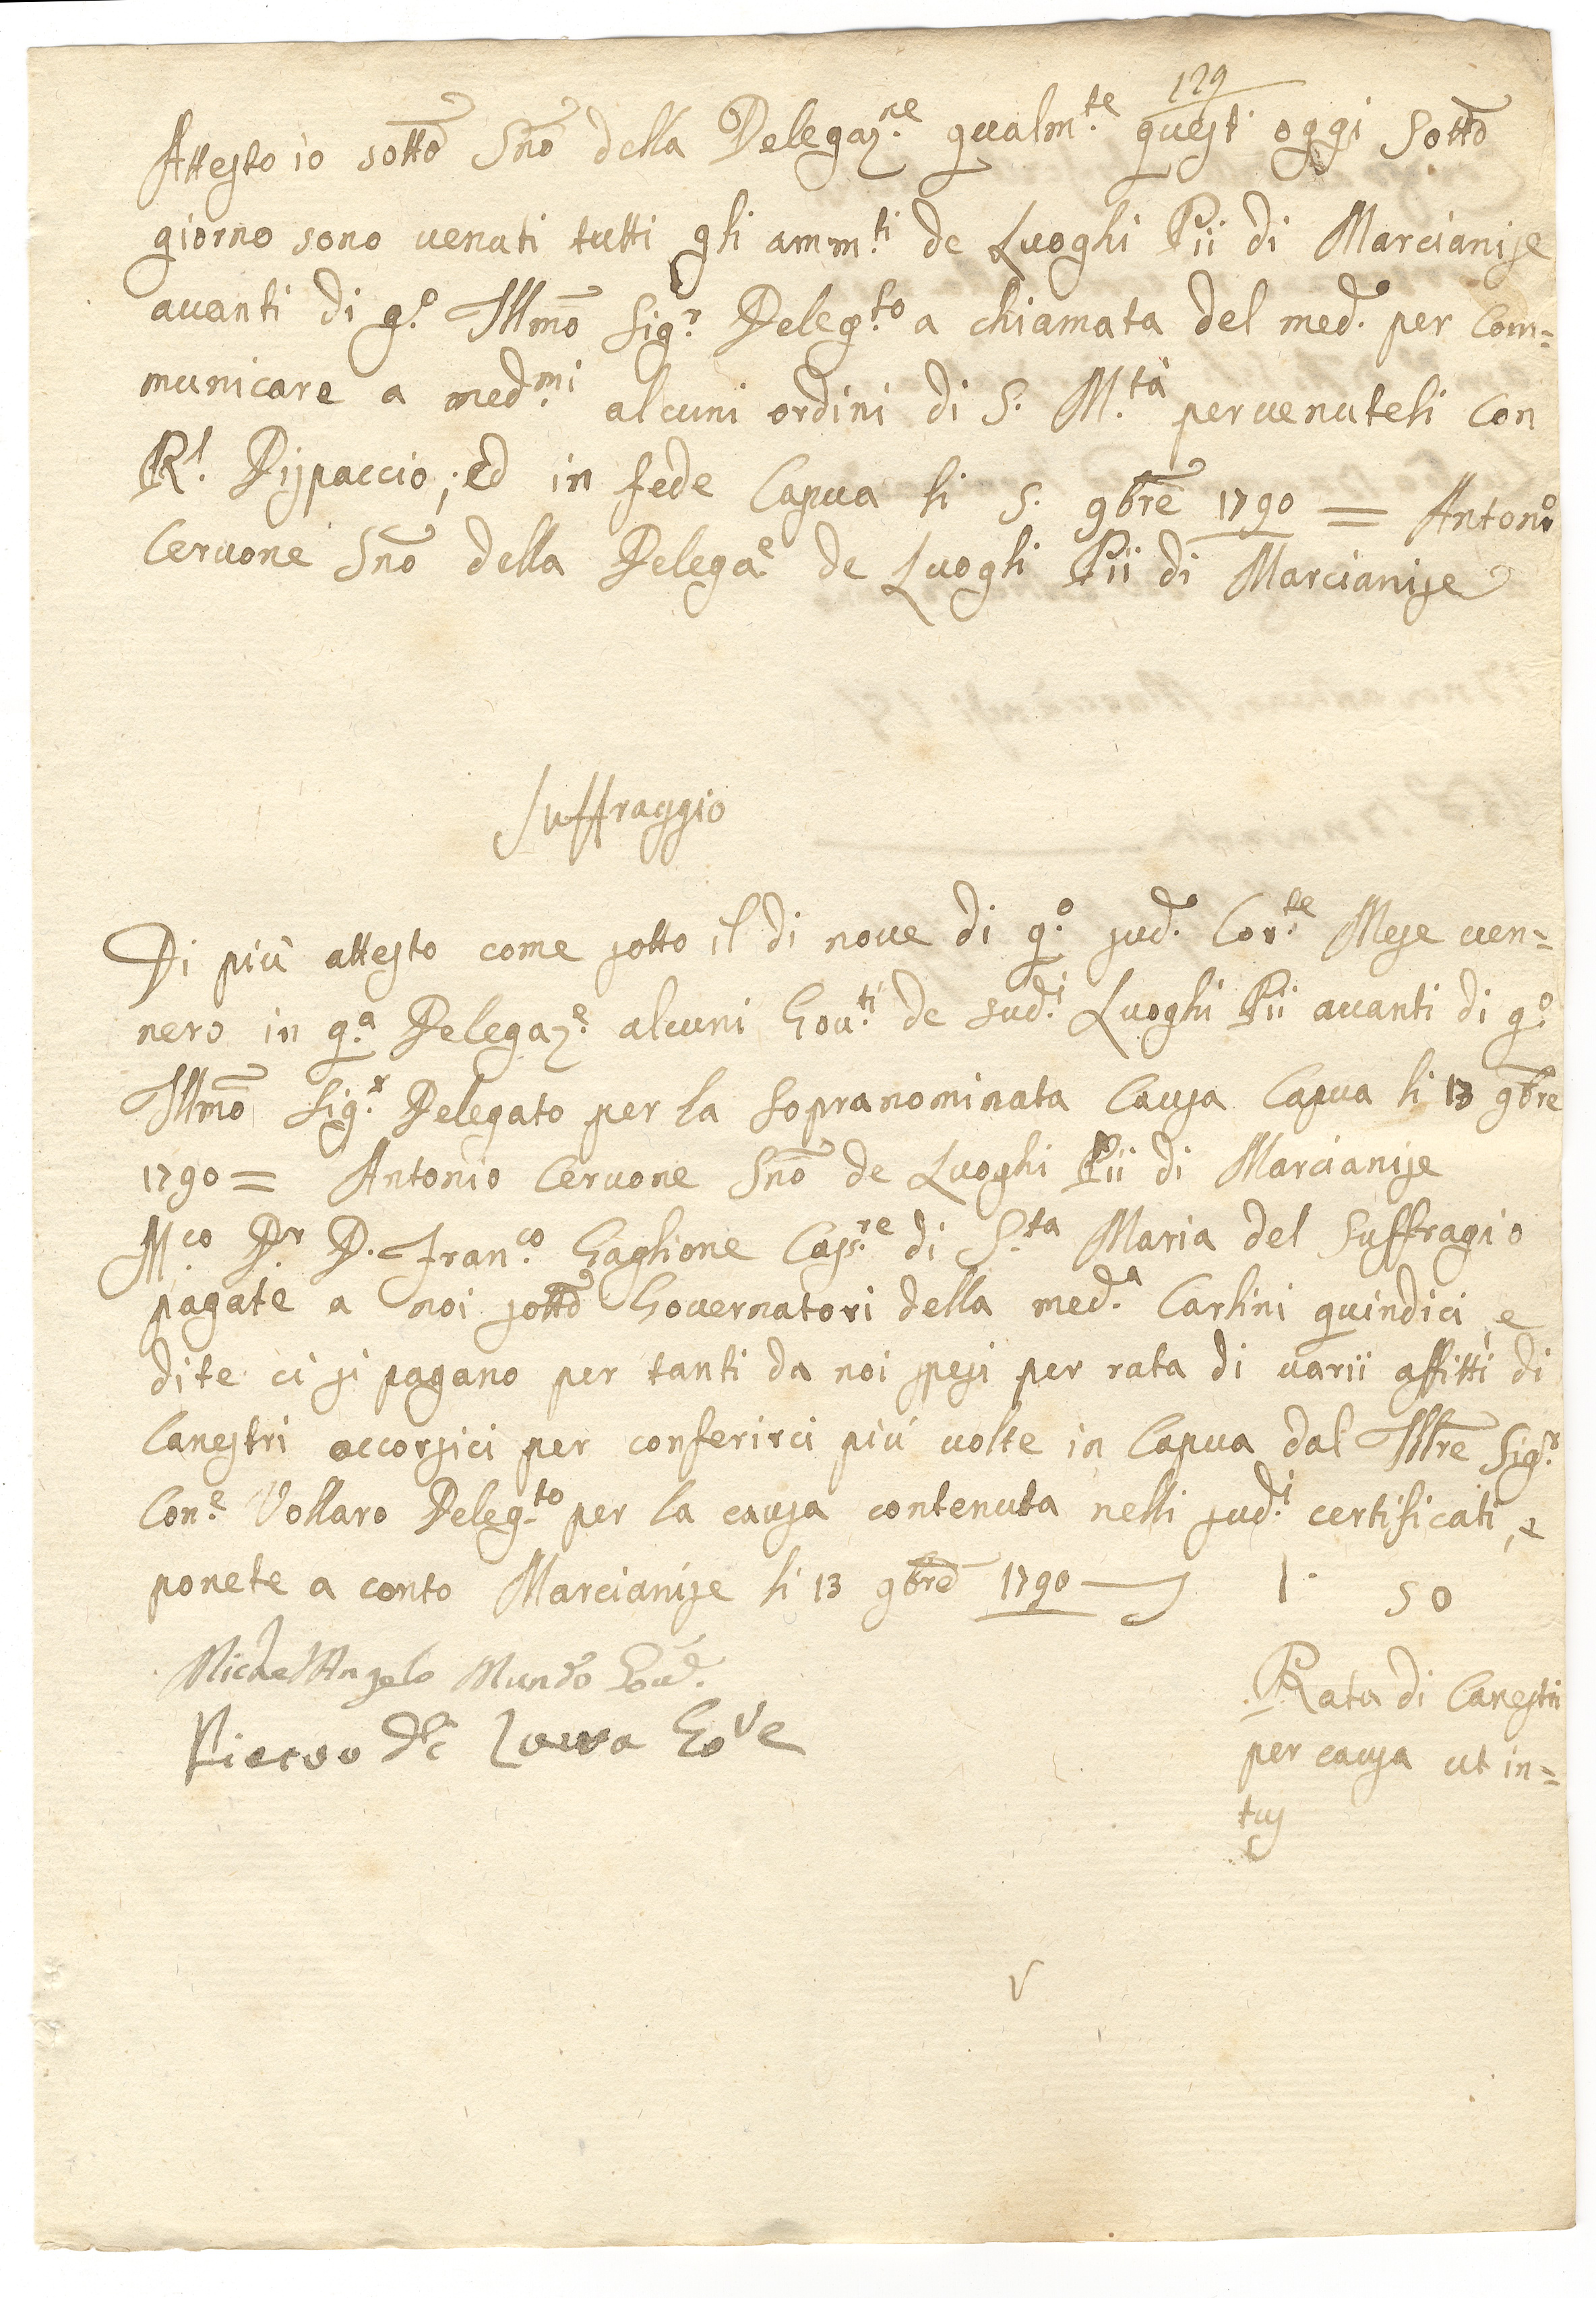 129
Attesto io sotto Sño della Delegaz.ne qualm.te quest' oggi sotto
giorno sono venuti tutti gli amm.ti de Luoghi Pii di Marcianise
avanti di q.o Illmõ Sig.r Deleg.to a chiamata del med.o per Com=
municare a med.mi alcuni ordini di S. M.tà pervenuteli con
R.l Dispaccio; ed in fede Capua li 5. 9bre 1790 = Anton.o
Cervone Sño della Delega.e de Luoghi Pii di Marcianise
Suffraggio
Di più attesto come sotto il di nove di q.o sud.o Cor.te Mese ven=
nero in q.a Delegaz.e alcuni Gov.ti de sud.i Luoghi Pii avanti di q.o
Illmõ Sig.r Delegato per la sopranominata Causa Capua li 13 9bre
1790 = Antonio Cervone Sño de Luoghi Pii di Marcianise
M.co D.r D. Fran.co Gaglione Cass.re di S.ta Maria del Suffragio
pagate a noi sottõ Governatori della med.a Carlini quindici, e
dite ci si pagano per tanti da noi spesi per rata di varii affitti di
Canestri accorsici per conferirci più volte in Capua dal Illtre Sig.r
Con.e Vollaro Deleg.to per la causa contenuta nelli sud.i certificati, e
ponete a conto Marcianise li 13 9bre 1790 — 1. 50
MichelAngelo Mundo Gov.e
Rata di Canestri
per causa ut in=
tus
Gov.e